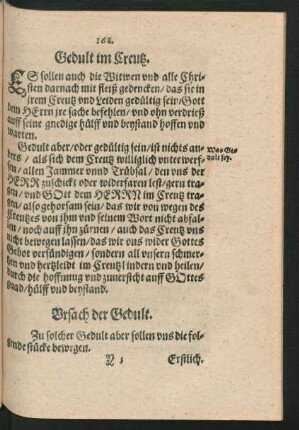 162.
Gedult im Creutz.
ES sollen auch die Witwen vnd alle Chri-
sten darnach mit fleiß gedencken/ das sie in
jrem Creutz vnd Leiden gedültig sein/ Gott
dem HErrn jre sache befehlen/ vnd ohn verdrieß
auff seine gnedige hülff vnd beystand hoffen vnd
warten.
Gedult aber/ oder gedültig sein/ ist nichts an-
ders/ als sich dem Creutz williglich vnterwerf-
fen/ allen Jammer vnnd Trübsal/ den vns der
HERR zuschickt oder widerfaren lest/ gern tra-
gen/ vnd GOtt dem HERRN im Creutz tra-
gen/ also gehorsam sein/ das wir von wegen des
Creutzes von jhm vnd seinem Wort nicht abfal-
len/ noch auff jhn zürnen/ auch das Creutz vns
nicht bewegen lassen/ das wir vns wider Gottes
Gebot versündigen/ sondern all vnsern schmer-
tzen vnd hertzleidt im Creutz lindern vnd heilen/
durch die hoffnung vnd zuuersicht auff GOttes
gnad/ hülff vnd beystand.
Was Ge-
dult sey.
Vrsach der Gedult.
Zu solcher Gedult aber sollen vns die fol-
gende stücke bewegen.
Erstlich.